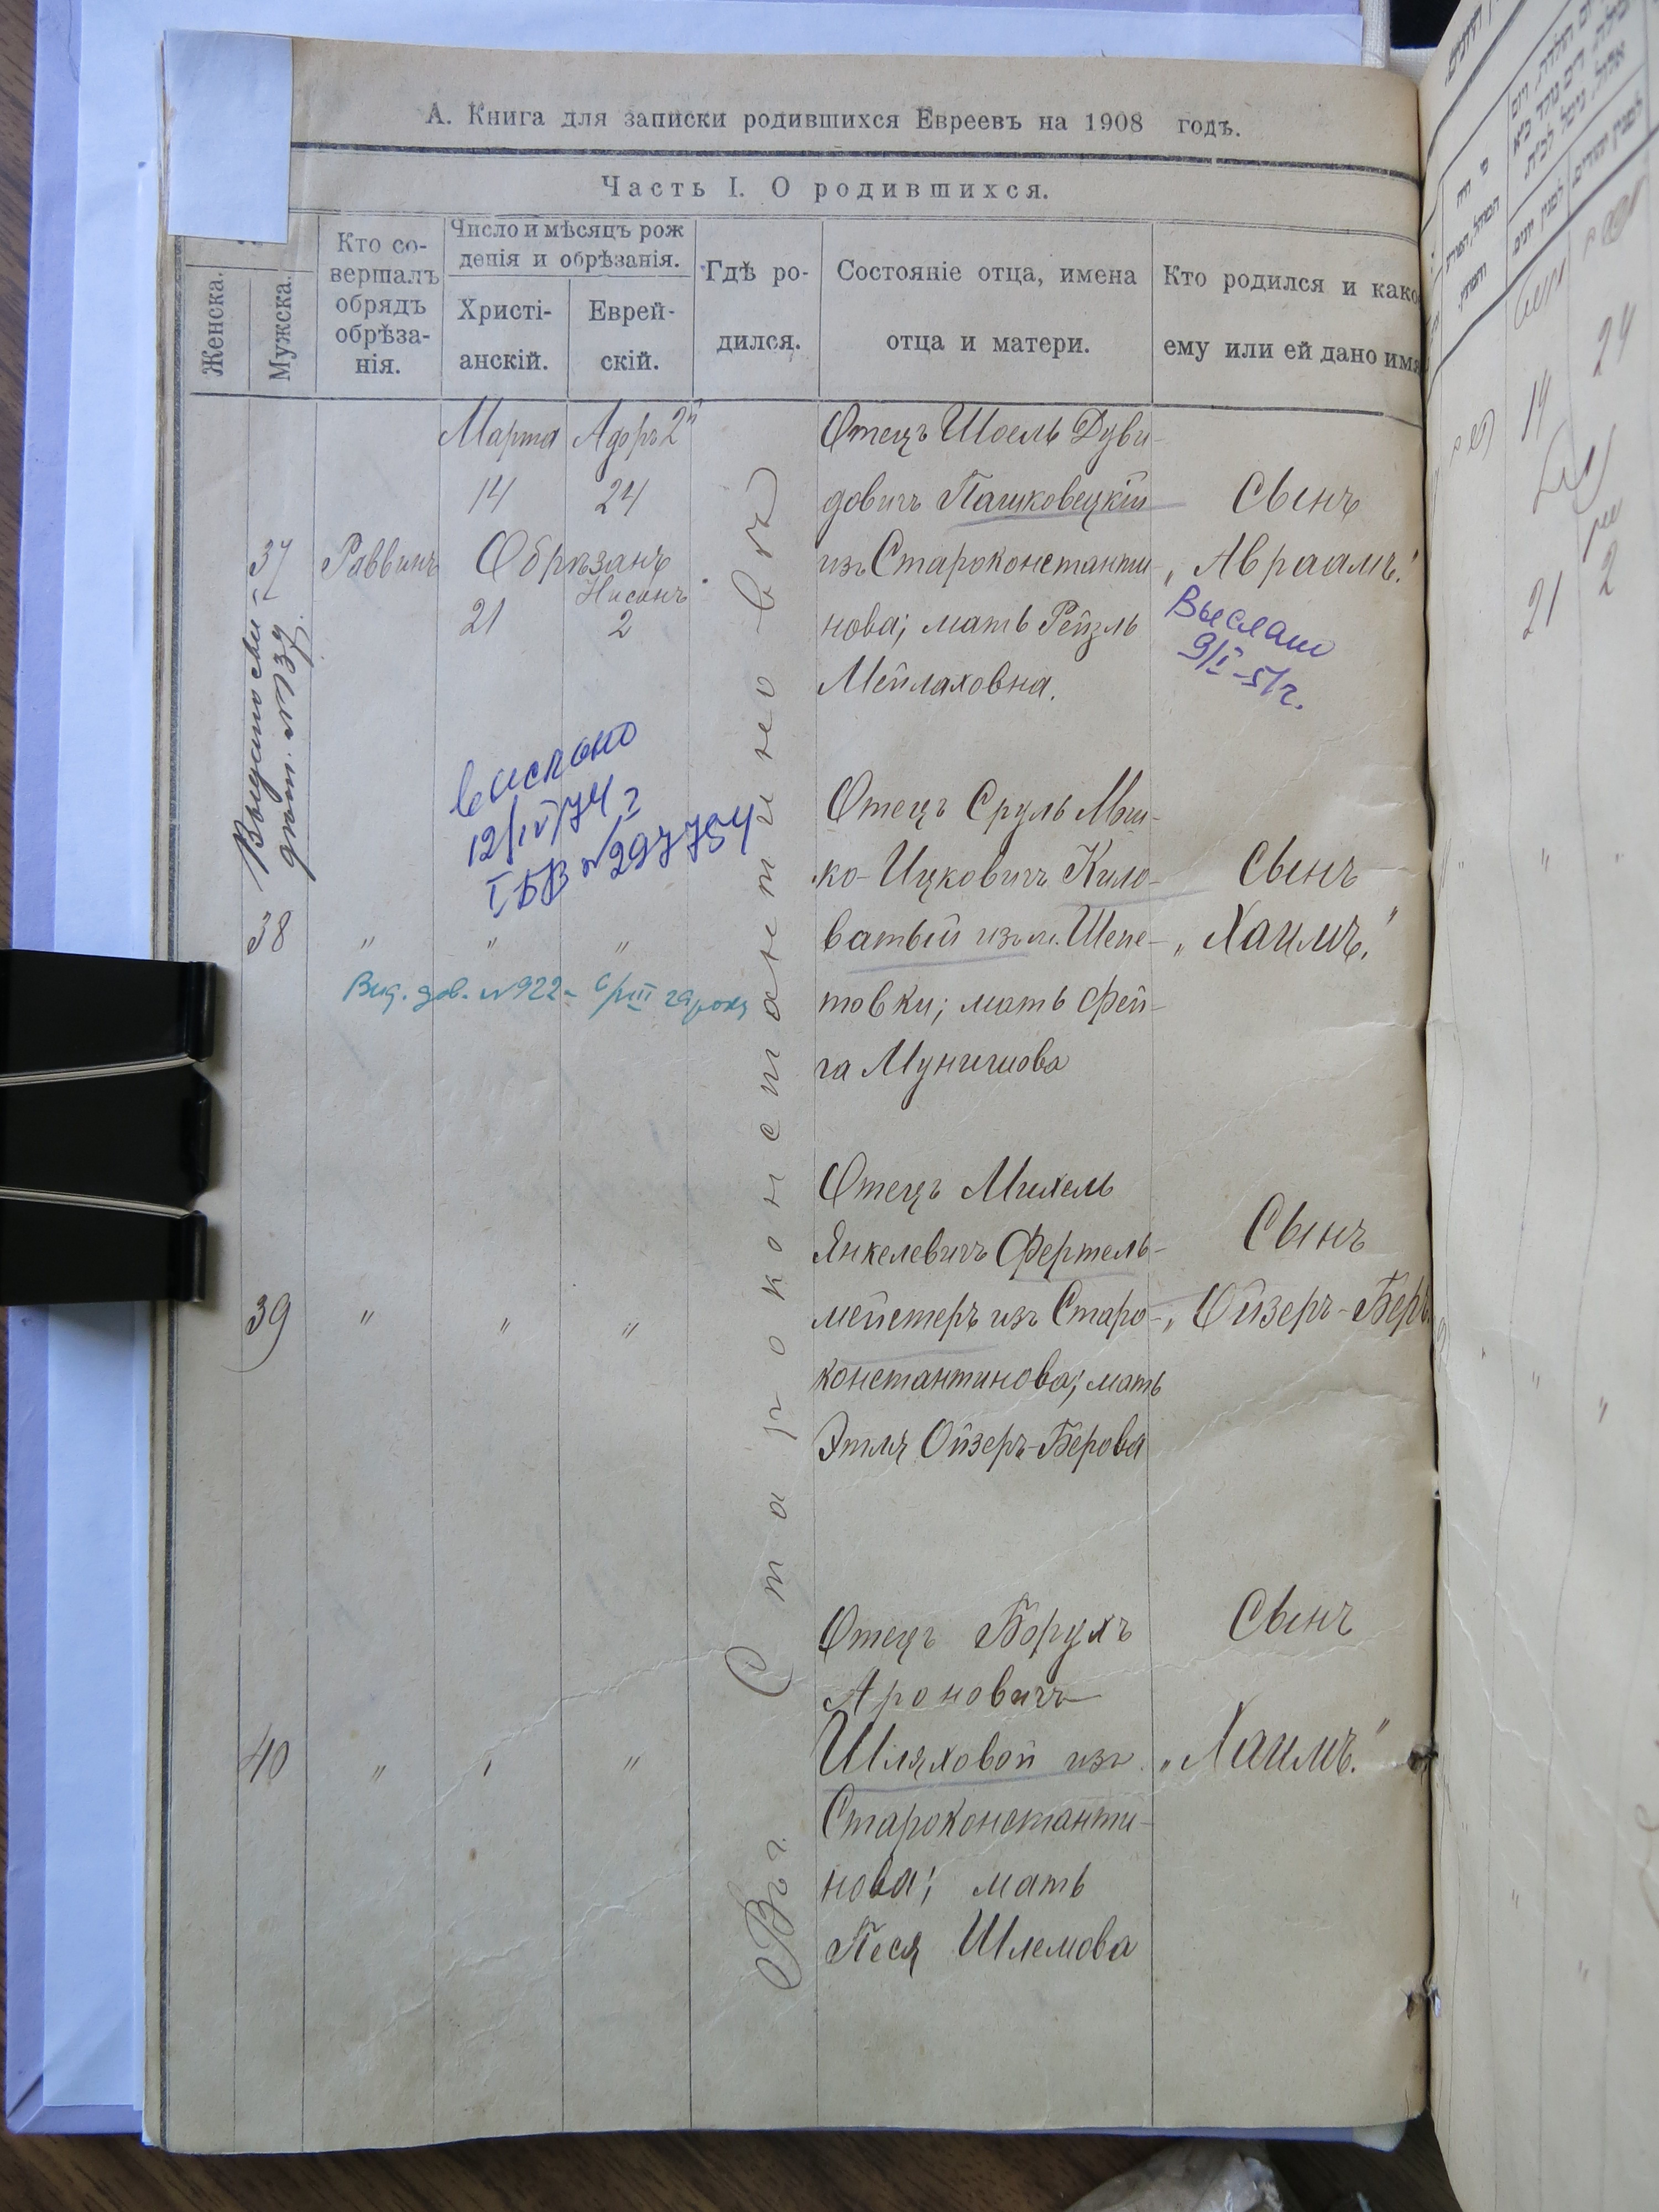 А. Книга для записки родившихся Евреевъ на 1908 годъ.
Часть I. О родившихся.
Женска.
Мужска.
Кто со-
вершалъ
обрядъ
обрѣза-
нія.
Число и мѣсяцъ рож
денія и обрѣзанія.
Христі-
анскій.
Еврей-
скій.
Гдѣ ро-
дился.
Состояніе отца, имена
отца и матери.
Кто родился и како
ему или ей дано имя
37
Раввинъ
Марта
14
Адоръ 2й
24
Обрѣзанъ
21
Нисанъ
2
Отецъ Шоель Дуви-
довичъ Пашковецкій
изъ Староконстанти-
нова; мать Рейзль
Мейлаховна.
Сынъ
„Авраамъ."
Выслано
9/I-51г.
выслано
12/IV/74г
I БВ №297794
Въ г. Староконстантиновѣ
38
"
"
"
Вид. дов. №922-
Отецъ Сруль Мош-
ко-Ицковичъ Кило-
ватый изъ м. Шепе-
товки; мать Фей-
га Мунишова
Сынъ
„Хаимъ."
39
"
"
"
Отецъ Михель
Янкелевичъ Фертель-
мейстеръ изъ Старо-
константинова; мать
Этля Ойзеръ-Берова
Сынъ
„Ойзеръ-Беръ
40
"
"
"
Отецъ Борухъ
Ароновичъ
Шляховой изъ
Староконстанти-
нова; мать
Песя Шлемова
Сынъ
„Хаимъ."
14
24
21
2